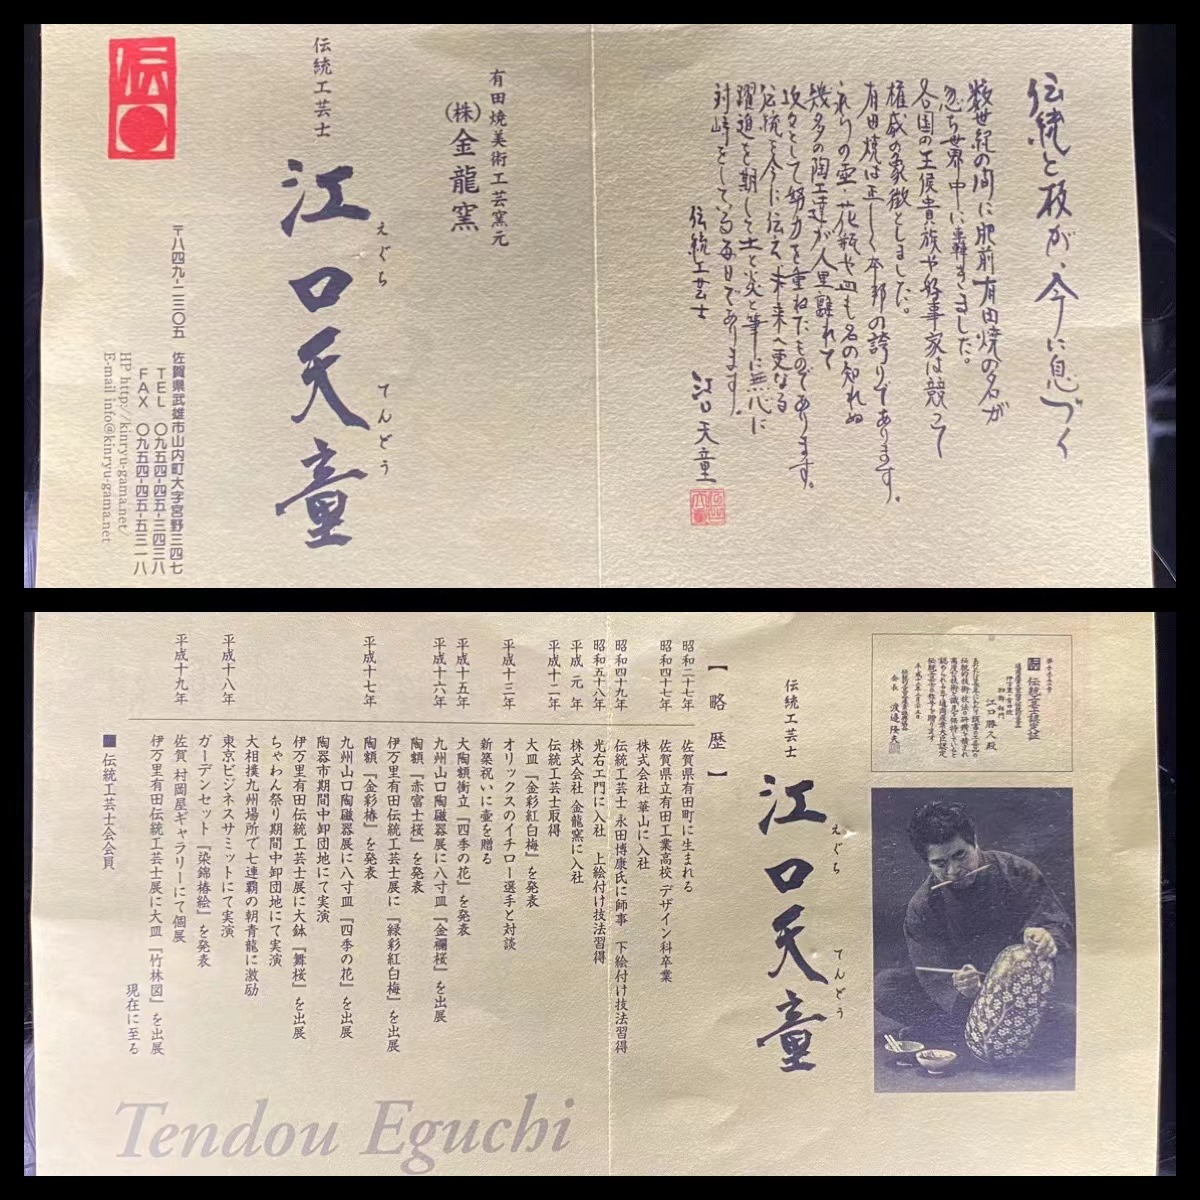 伝統と技が、今に息づく
数世紀の間に肥前有田焼の名が
忽ち世界中に轟きました。
各国の王侯貴族や好事家は競って
権威の象徴としました。
有田焼は正しく本邦の誇りであります。
水りの壷・花瓶や皿も名の知れぬ
幾多の陶工達が人里離れて
攻々として努力を重ねたものであります。
伝統を今に伝え、未来へ更なる
躍進を期して土と炎と筆に無心に
対峙をしている毎日であります。
伝統工芸士 江口天童
有田焼美術工芸窯元
(株)金龍窯
伝統工芸士 江口天童
えぐち てんどう
伝
〒八四九-二三〇五 佐賀県武雄市山内町大字宮野三四七
TEL 〇九五四-四五-三四三八
FAX 〇九五四-四五-五三一八
HP http://kinryu-gama.net/
E-mail info@kinryu-gama.net
伝統工芸士認定証
江口勝久殿
会長 渡邊隆夫
伝統工芸士 江口天童
えぐち てんどう
【略歴】
昭和二十七年 佐賀県有田町に生まれる
昭和四十七年 佐賀県立有田工業高校 デザイン科卒業
株式会社 華山に入社
昭和四十九年 伝統工芸士 永田博康氏に師事 下絵付け技法習得
昭和五十八年 光右エ門に入社 上絵付け技法習得
平成元年 株式会社 金龍窯に入社
平成十二年 伝統工芸士取得
大皿『金彩紅白梅』を発表
平成十三年 オリックスのイチロー選手と対談
新築祝いに壷を贈る
平成十五年 大陶額衝立『四季の花』を発表
平成十六年 九州山口陶磁器展に八寸皿『金襴桜』を出展
陶額『赤富士桜』を発表
伊万里有田伝統工芸士展に『緑彩紅白梅』を出展
平成十七年 陶額『金彩椿』を発表
九州山口陶磁器展に八寸皿『四季の花』を出展
陶器市期間中卸団地にて実演
伊万里有田伝統工芸士展に大鉢『舞桜』を出展
ちゃわん祭り期間中卸団地にて実演
大相撲九州場所で七連覇の朝青龍に激励
平成十八年 東京ビジネスサミットにて実演
ガーデンセット『染錦椿絵』を発表
平成十九年 佐賀 村岡屋ギャラリーにて個展
伊万里有田伝統工芸士展に大皿『竹林図』を出展
現在に至る
■伝統工芸士会会員
Tendou Eguchi